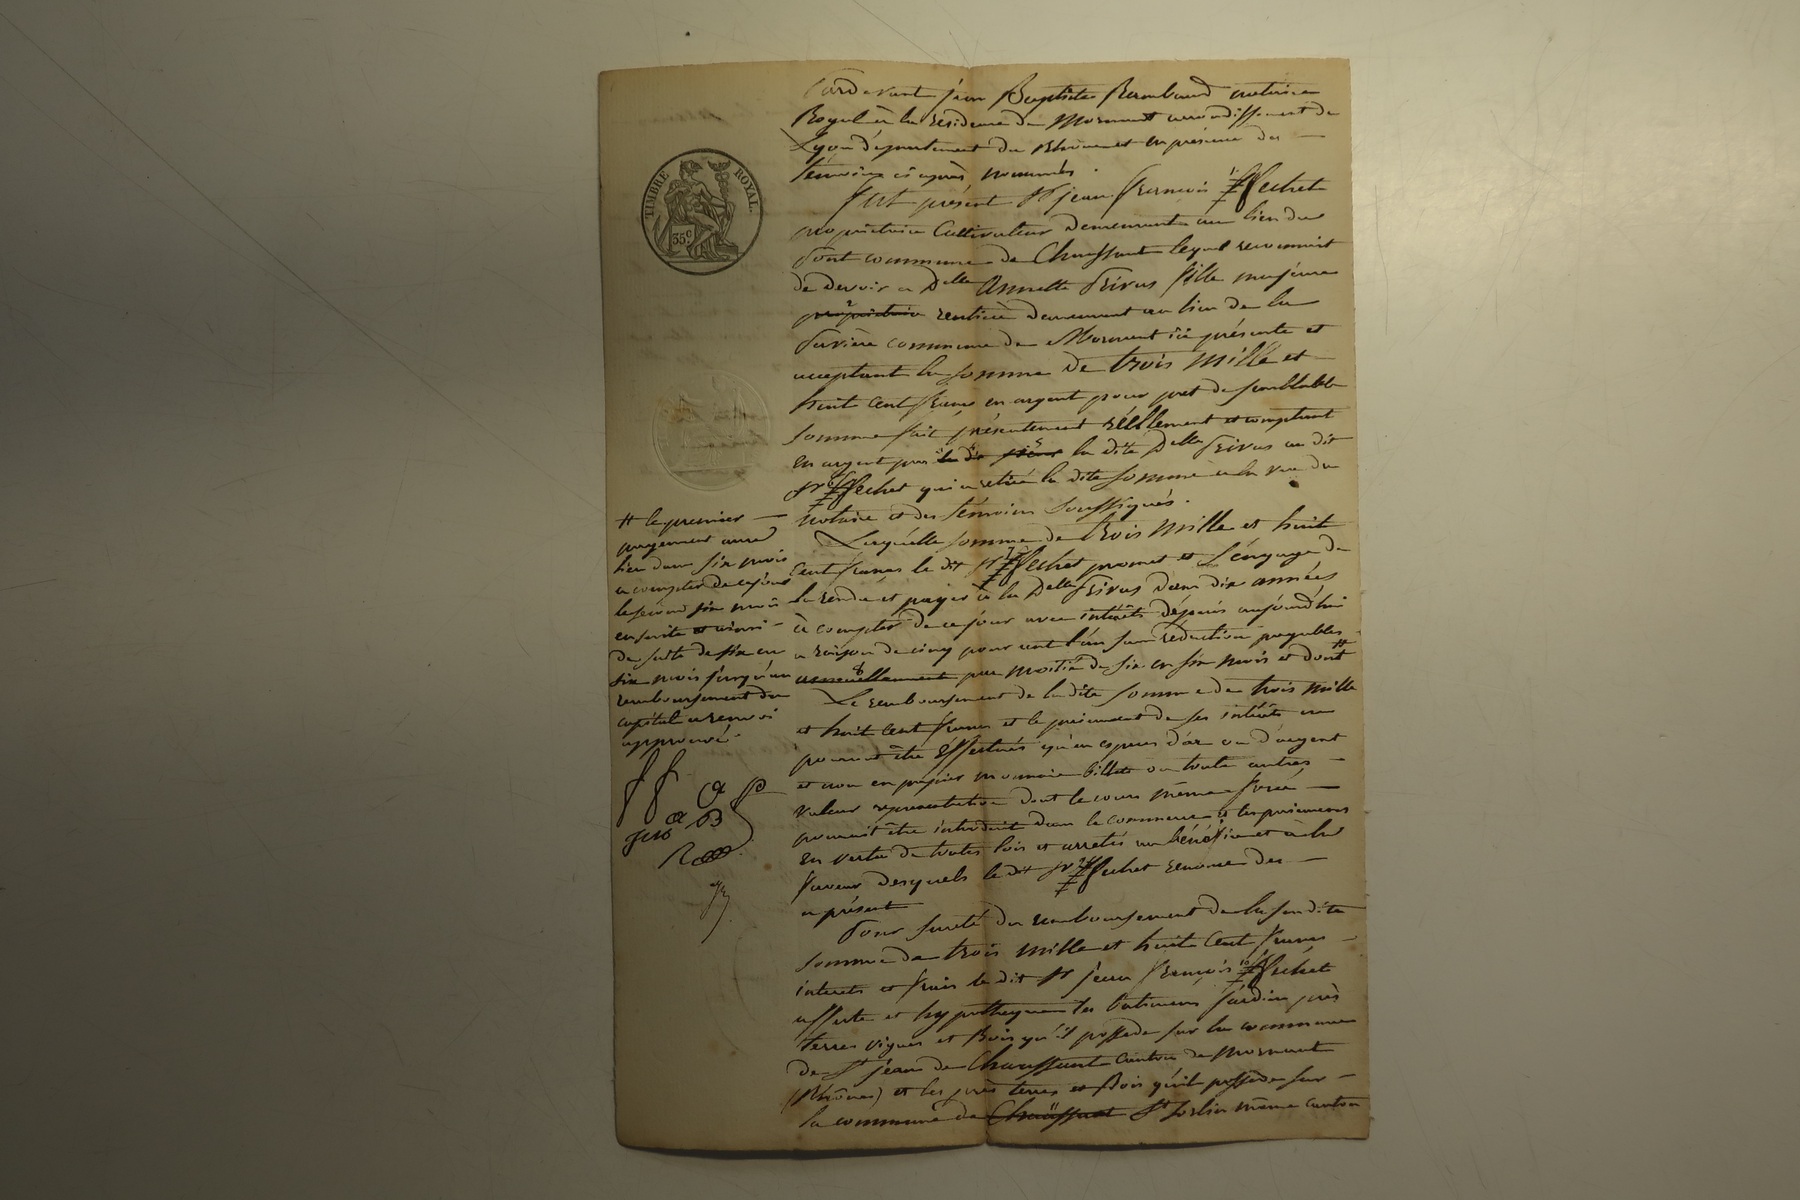 TIMBRE ROYAL.
35c
Pardevant jean Baptiste Rambaud notaire
Royal à la résidence de Mornant arrondissement de
Lyon département du Rhône et en présence des
témoins ci après nommés.
fut présent Sr jean François
propriétaire Cultivateur demeurant au lieu du
pont commune de Chaussant lequel reconnait
de devoir a Delle Annette fille majeure
propriétaire rentière demeurant au lieu de la
commune de Mornant ici présente et
acceptant la somme de trois mille et
huit cent francs en argent pour pret de semblable
somme fait présentement réellement et comptant
en argent par la dite Delle au dit
Sr qui a retiré la dite somme a la vue du
notaire et des témoins soussignés.
Laquelle somme de trois mille et huit
cent francs le dit Sr promet et s'engage de
la rendre et payer à la Delle dans dix années
à compter de ce jour avec intérêts depuis aujourd'hui
a raison de cinq pour cent l'an sans réduction payables
annuellement par moitié de six en six mois et dont #
# le premier
payement aura
lieu dans six mois
a compter de ce jour
le second six mois
ensuite et ainsi
de suite de six en
six mois jusqu'au
remboursement du
capital a renvoi
approuvé.
Le remboursement de la dite somme de trois mille
et huit cent francs et le paiement de ses intérêts ne
pourront être effectués qu'en espèces d'or ou d'argent
et non en papier monnaie billets ou toute autres
valeur représentative dont le cours même forcé
pourrait être introduit dans le commerce
en vertu de toutes lois et arrêtés au bénéfice et à la
faveur desquels le dit Sr renonce dès
a présent
Pour sureté du remboursement de la susdite
somme de trois mille et huit cent francs
intérêts et frais le dit Sr jean François
affecte et hypothèque les batimens jardin près
terres vignes et Bois qu'il possède sur la commune
de St jean de Chaussant canton de Mornant
(Rhône) et les près terres et Bois qu'il possède sur
la commune de Chaussant St Sorlin même canton